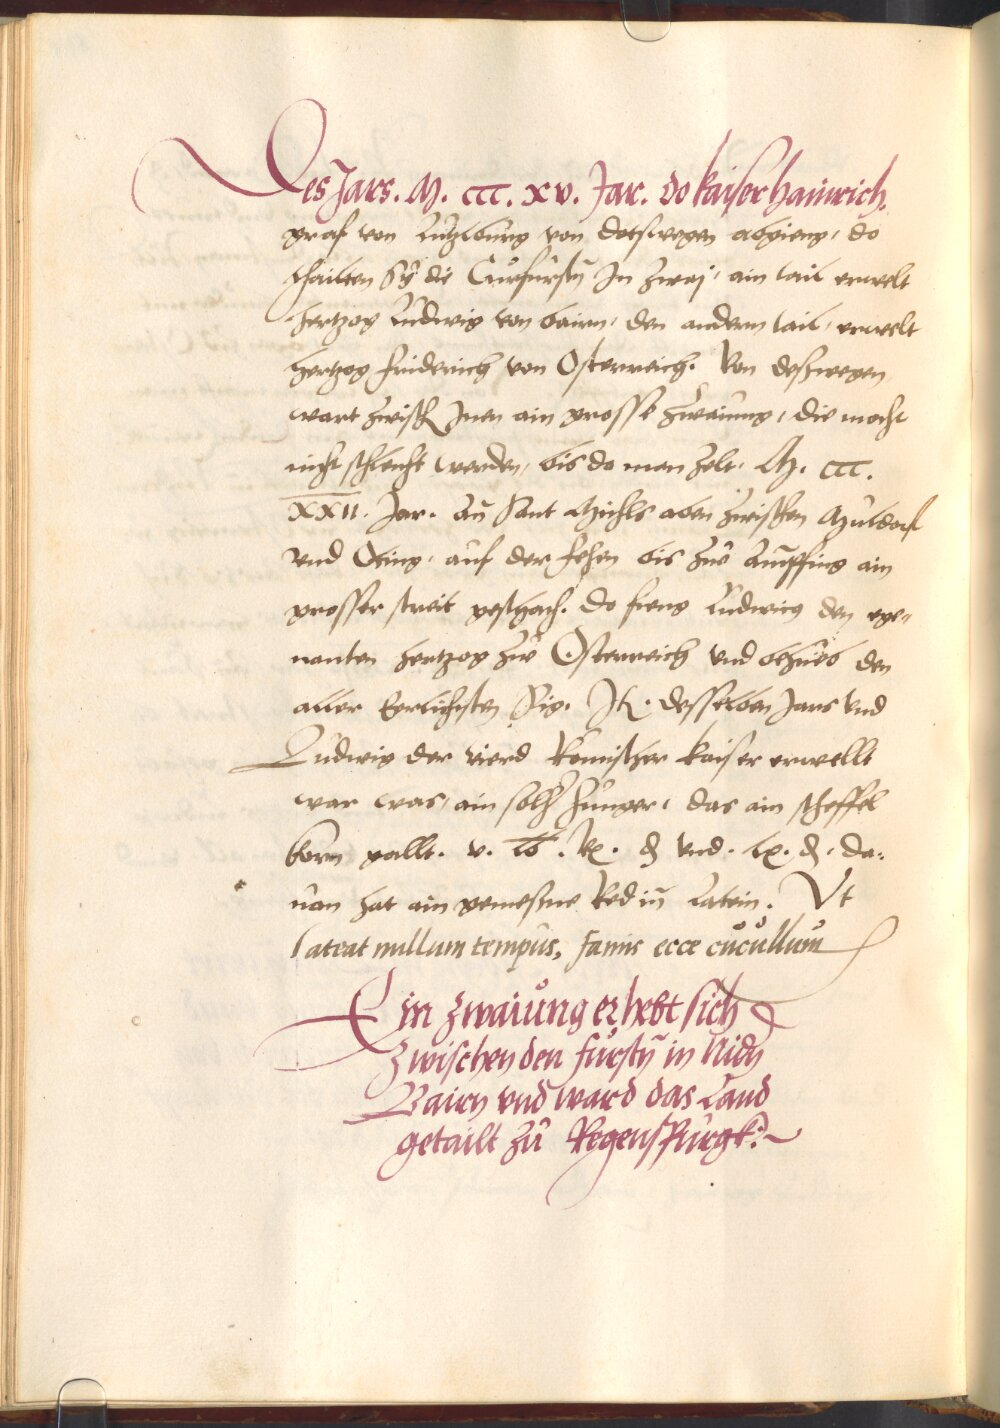 Des Jars. M. CCC. xv. Jar. do kaiser Hainrich.
graf von Lutzlburg von dotswegen abgieng, do
thailten sÿ die Curfürstn In zwaj, ain tail erwelt
hertzog Ludwig von bairn, den andern tail, erwelt
hertzog friderich von Osterreich. Von deßwegen
wart zwischn Inen ain grosse zwaiung, die mocht
nicht schlecht werden, bis do man zelt. M. CCC.
XXII. Jar. An Sant Michls aben zwischen Muldorf
vnd Oting, auf der fehen bis zů Ampfing ain
grosser streit geschach. Do fieng Ludwig den ege-
nanten hertzog zů Osterreich vnd behueb den
aller Erlichisten Sig. It. desselben Jars vnd
Ludwig der vierd Romischer kaiser erwellt
war was, ain solher hunger, das ain scheffel
korn gallt. v. lb. lx. d vnd. lx. d. da-
uon hat ain gemeßne Red in Latein. Vt
lateat nullum tempus, famis ecce cucullum
Ein zwaiung erhebt sich
Zwischen den fürstn in Nidn
Bairn vnd ward das Land
getailt zů Regenspurgk:~